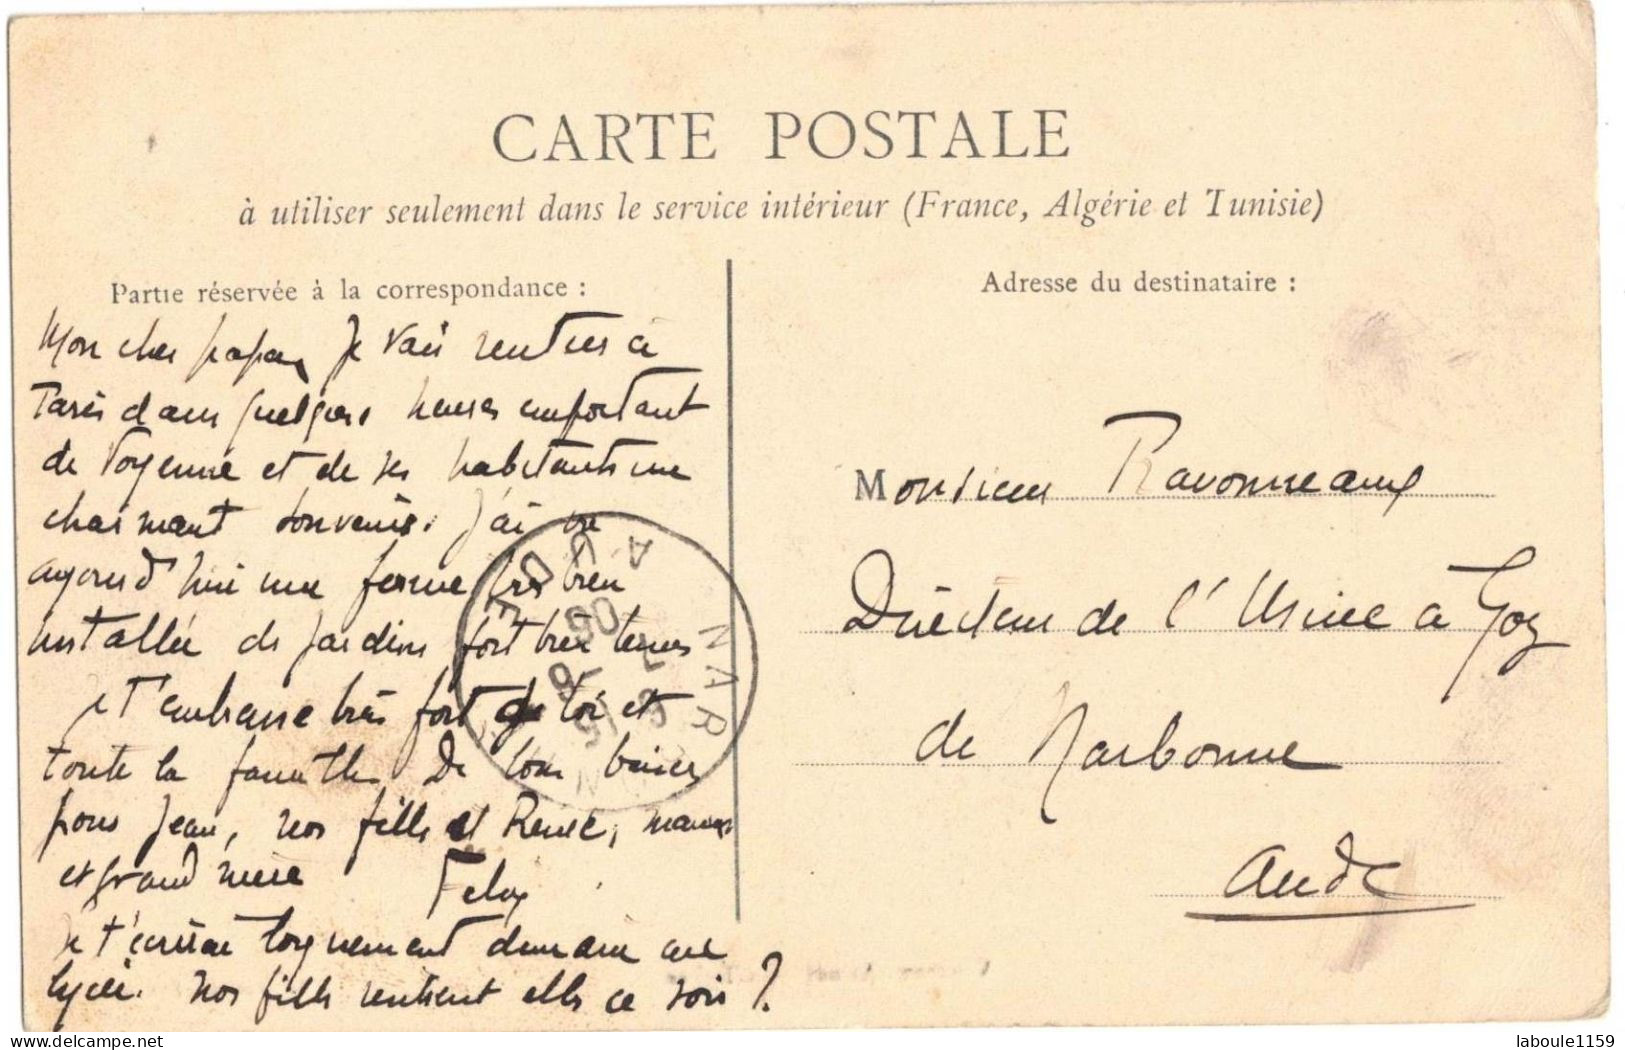 CARTE POSTALE
à utiliser seulement dans le service intérieur (France, Algérie et Tunisie)
Partie réservée à la correspondance :
Adresse du destinataire :
Mon cher papa, Je vais rentrer à
Paris dans quelques heures emportant
de Voyenne et de ses habitants un
charmant souvenir. J'ai vu
aujourd'hui une ferme très bien
installée de jardins fort bien tenus
Je t'embrasse très fort de toi et
toute la famille De bons baisers
pour Jean, nos filles et Renée, maman
et grand mère Felix
Je t'écrirai longuement demain au
lycée. Nos filles rentrent elles ce soir ?
Monsieur Ravonneaux
Directeur de l'Usine a Gaz
de Narbonne
Aude
NAR
laboule1159